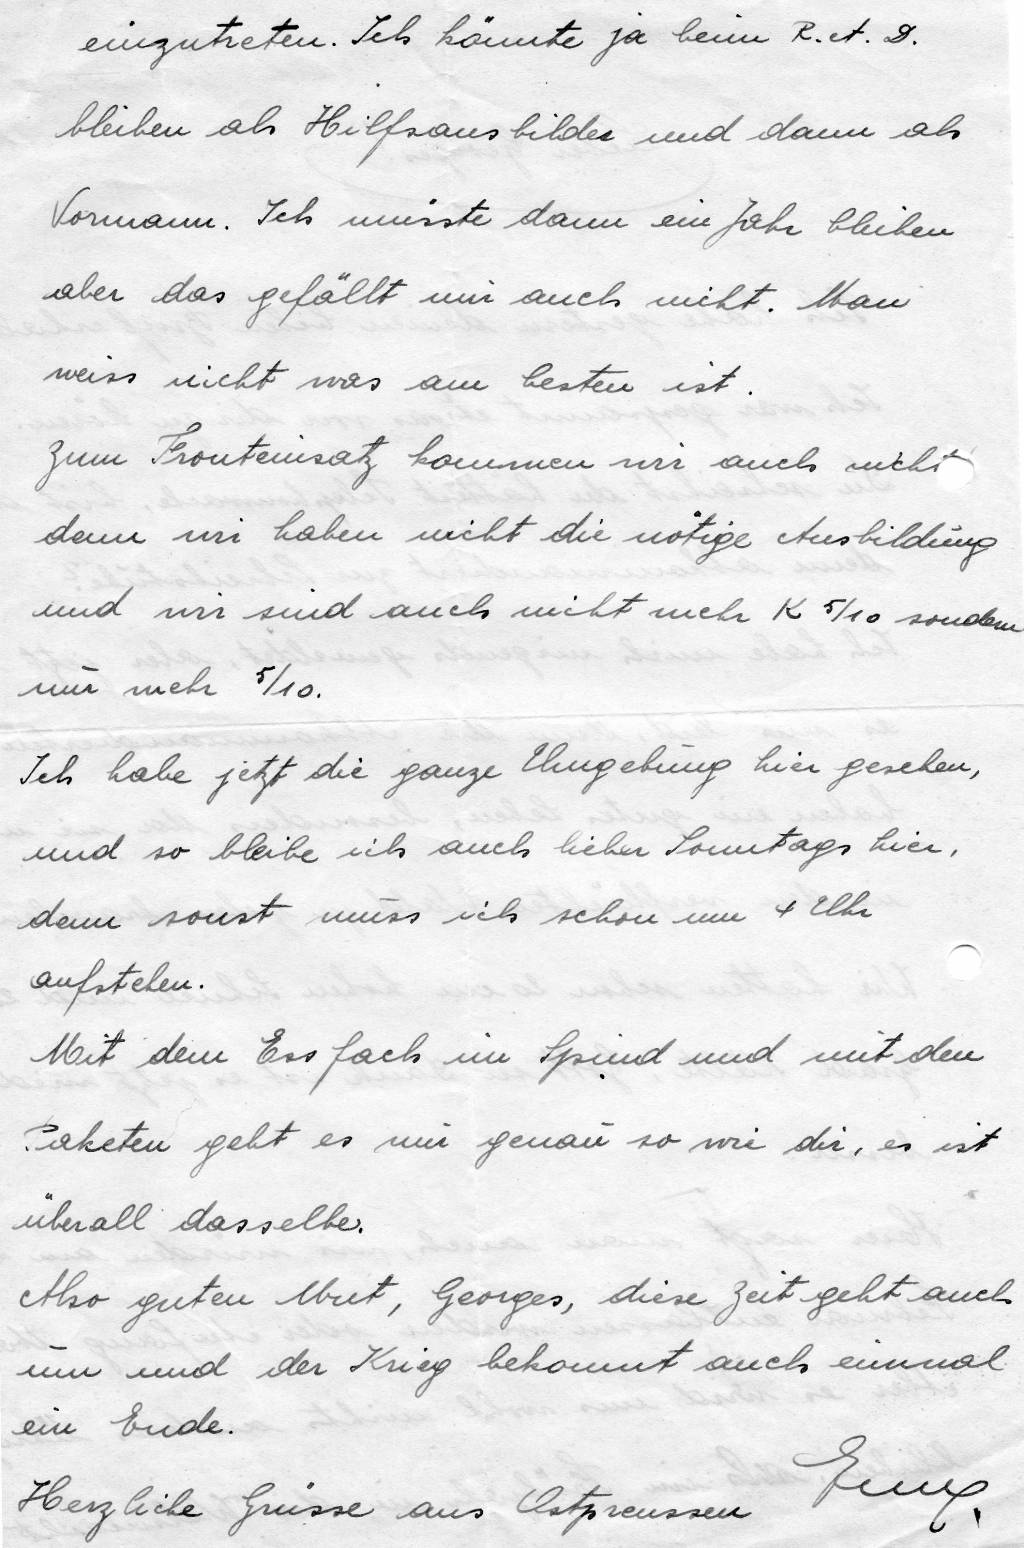 einzutreten. Ich könnte ja beim R.A.D.
bleiben als Hilfsausbilder und dann als
Vormann. Ich müsste dann ein Jahr bleiben
aber das gefällt mir auch nicht. Man
weiss nicht was am besten ist.
Zum Fronteinsatz kommen wir auch nicht
denn wir haben nicht die nötige Ausbildung
und wir sind auch nicht mehr K 5/10 sondern
nur mehr 5/10.
Ich habe jetzt die ganze Umgebung hier gesehen,
und so bleibe ich auch lieber Sonntags hier,
denn sonst muss ich schon um 4 Uhr
aufstehen.
Mit dem Essfach im Spind und mit den
Paketen geht es mir genau so wie dir, es ist
überall dasselbe.
Also guten Mut, Georges, diese Zeit geht auch
um und der Krieg bekommt auch einmal
ein Ende.
Herzliche Grüsse aus Ostpreussen